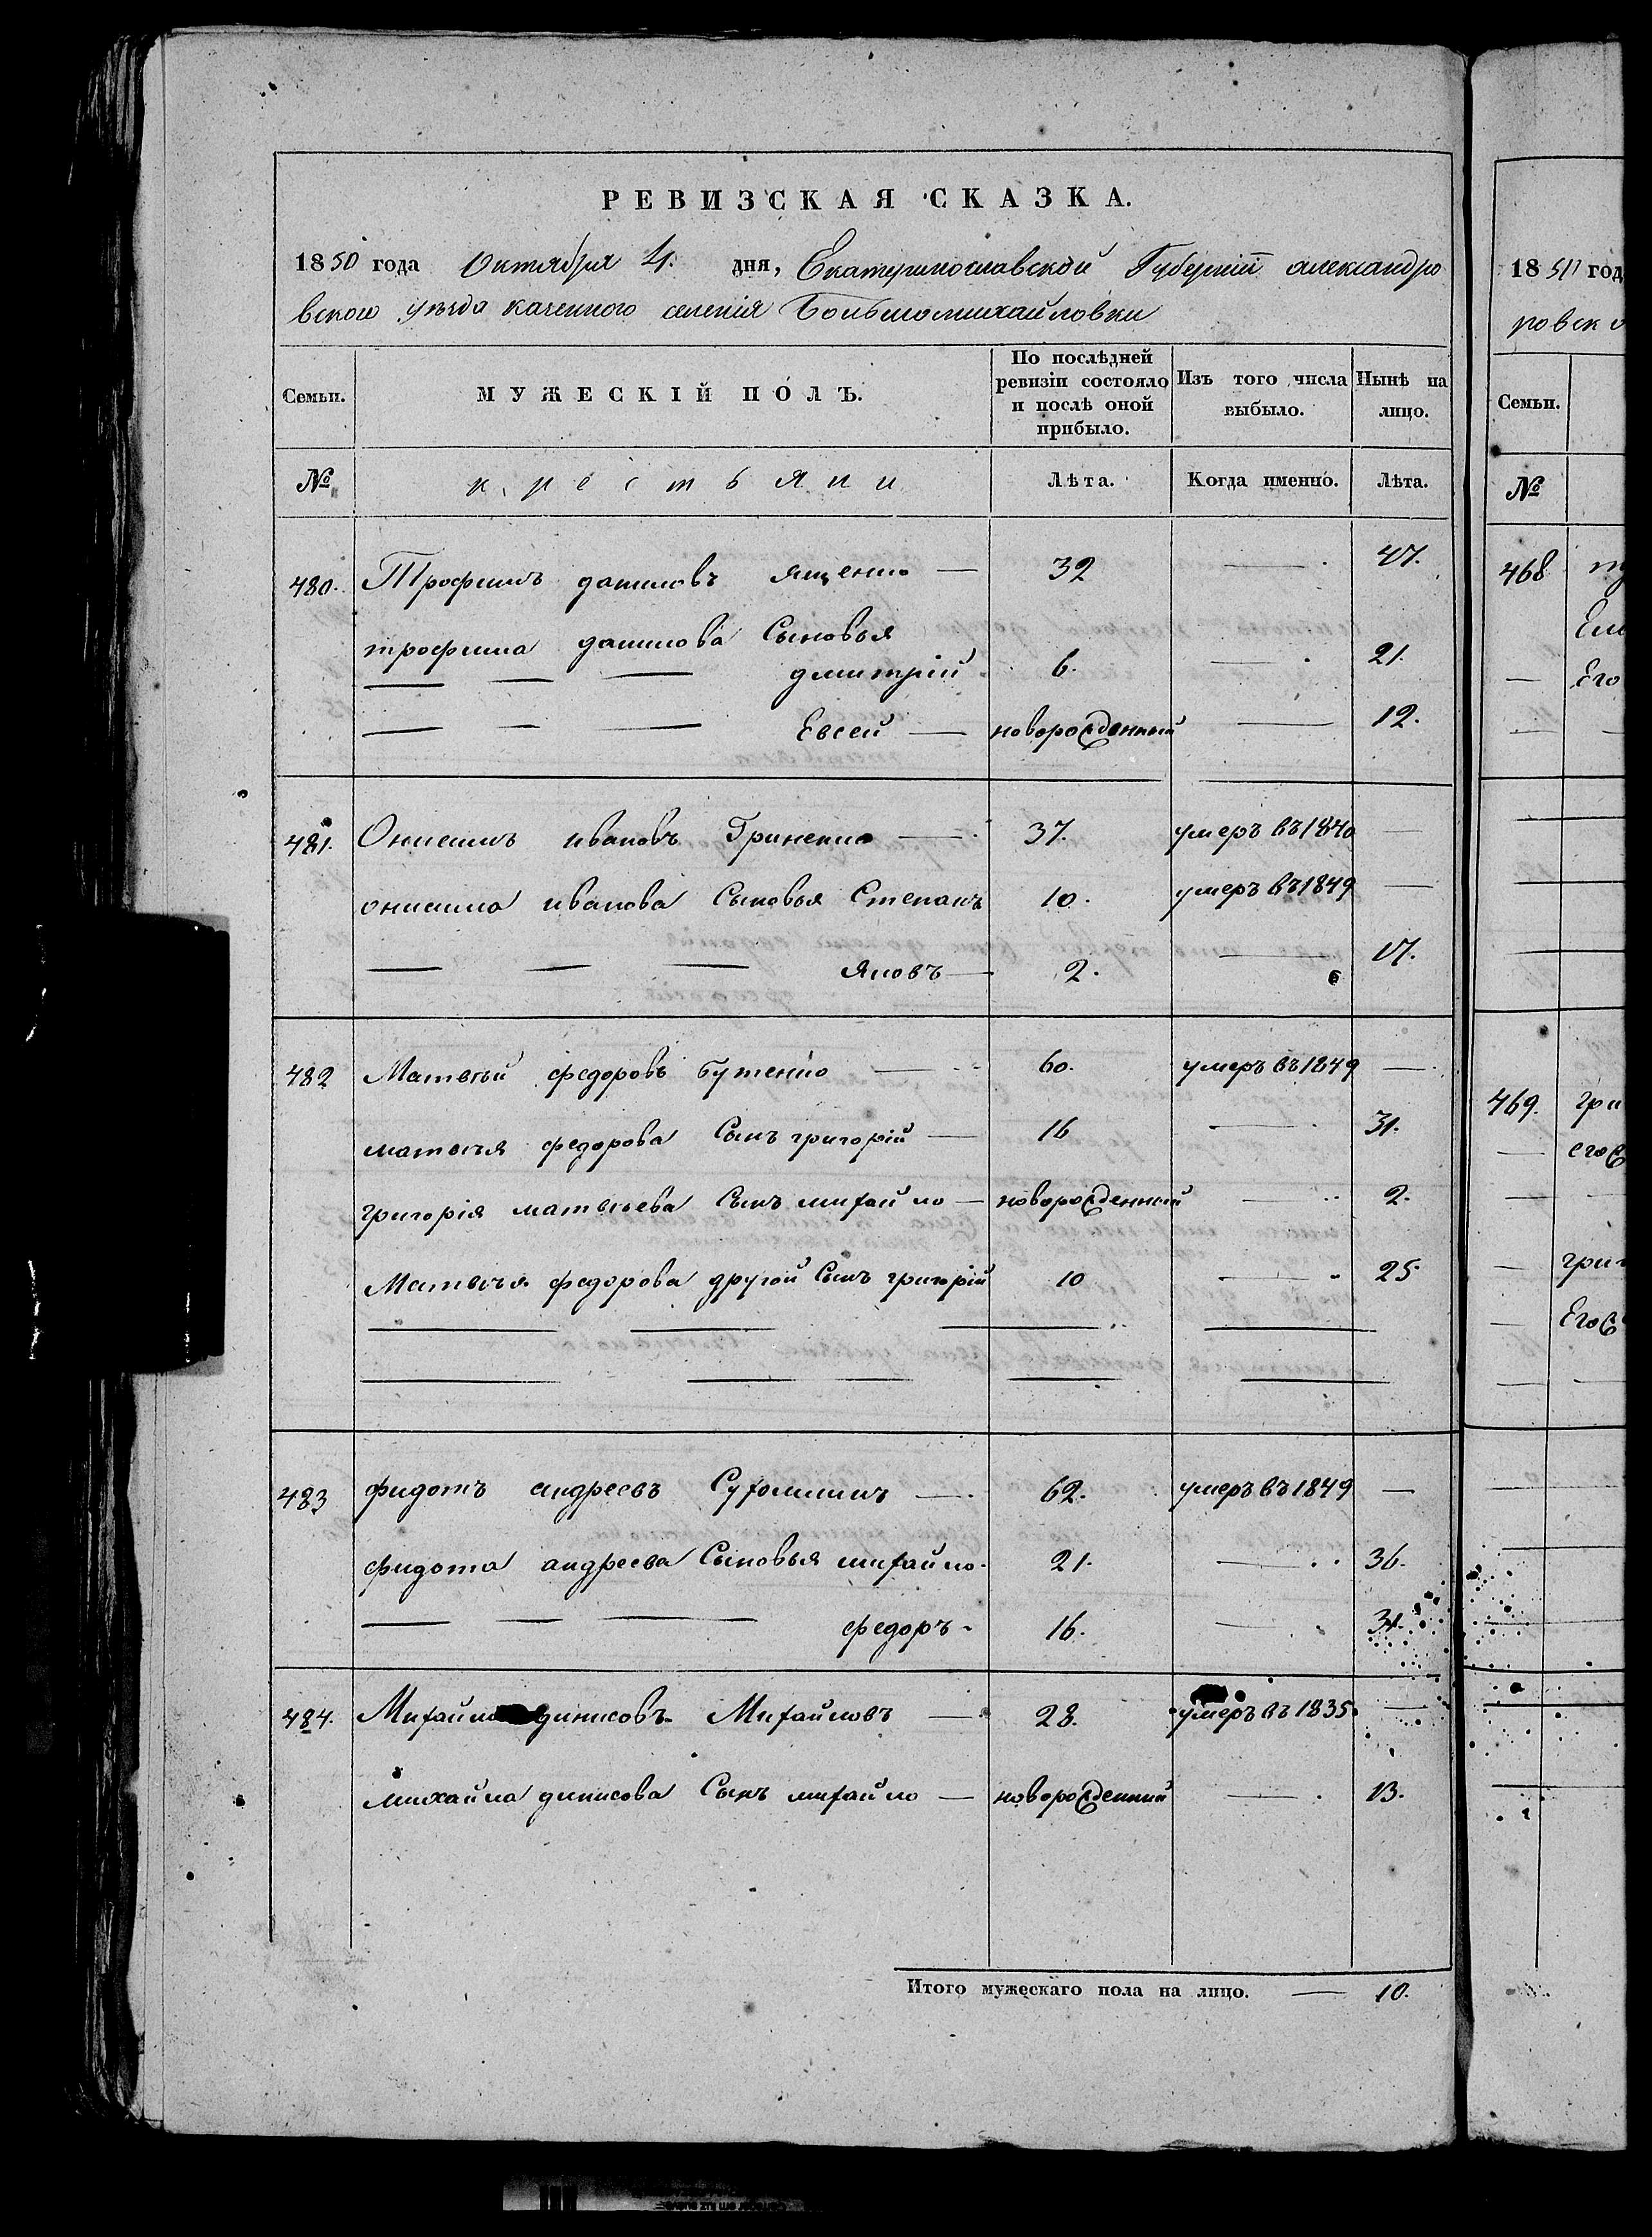 РЕВИЗСКАЯ СКАЗКА.
1850 года Октября 4. дня, Екатеринославской Губерніи александро
вского уѣзда казенного селенія Большомихайловки
Семьи.
МУЖЕСКІЙ ПОЛЪ.
По послѣдней ревизіи состояло и послѣ оной прибыло.
Изъ того числа выбыло.
Нынѣ на лицо.
№ крестьяни Лѣта. Когда именно. Лѣта.
480. Трофимъ даниловъ ященко — 32 — 47.
трофима данилова Сыновья
— — — дмитрій 6. — 21.
— — — Евсей — новорожденный — 12.
481. Онисимъ ивановъ Гриненко — 37. умеръ въ 1840 —
онисима иванова Сыновья Степанъ 10. умеръ въ 1849 —
— — — яковъ — 2. — 17.
482 Матвѣй федоровъ бутенко — 60. умеръ въ 1849 —
матвѣя федорова Сынъ григорій — 16 — 31.
григорія матвѣева Сынъ михайло — новорожденный — 2.
Матвѣя федорова другой Сынъ григорій 10 — 25
483 фидотъ андреевъ — 62. умеръ въ 1849 —
фидота андреева Сыновья михайло. 21. — 36.
— — — федоръ - 16. — 31.
484. Михайло динисовъ Михайловъ — 28. умеръ въ 1835 —
михайла динисова Сынъ михайло — новорожденный — 13.
Итого мужескаго пола на лицо. — 10.
1850 год
ровск
Семьи.
№
468
Ели
Его
469. гри
его
григ
Его